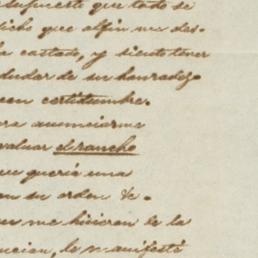 supuesto que todo se
dicho que alfin me des-
la castado, y siento tener
dudar de su honradez
con certidumbre.
para anunciarme
evaluar el rancho
que queria una
en su orden &.
que me hicieron de la
cion, le manifesté